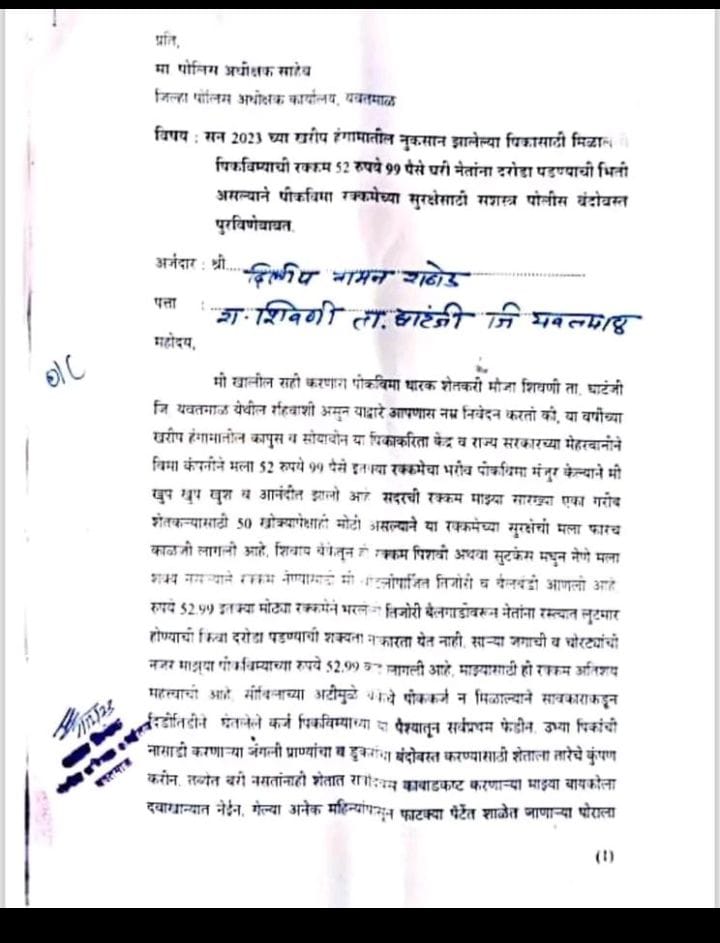 प्रति,
मा पोलिस अधीक्षक साहेब
जिल्हा पोलिस अधीक्षक कार्यालय, यवतमाळ
विषय : सन 2023 च्या खरीप हंगामातील नुकसान झालेल्या पिकासाठी
पिकविम्याची रक्कम 52 रुपये 99 पैसे घरी नेतांना दरोडा पडण्याची भिती
असल्याने पीकविमा रक्कमेच्या सुरक्षेसाठी सशस्त्र पोलीस बंदोबस्त
पुरविणेबाबत.
अर्जदार : श्री.... दिलीप वामन राठोड
पत्ता : रा. शिवणी ता. घाटंजी जि यवतमाळ
महोदय,
O/C
मी खालील सही करणारा पीकविमा धारक शेतकरी मौजा शिवणी ता. घाटंजी
जि यवतमाळ येथील रहिवाशी असुन याद्वारे आपणास नम्र निवेदन करतो की, या वर्षीच्या
खरीप हंगामातील कापुस व सोयाबीन या पिकाकरिता केंद्र व राज्य सरकारच्या मेहरबानीने
विमा कंपनीने मला 52 रुपये 99 पैसे इतक्या रक्कमेचा भरीव पीकविमा मंजुर केल्याने मी
खुप खुप खुश व आनंदीत झालो आहे. सदरची रक्कम माझ्या सारख्या एका गरीब
शेतकऱ्यासाठी 50 खोक्यापेक्षाही मोठी असल्याने या रक्कमेच्या सुरक्षेची मला फारच
काळजी लागली आहे, शिवाय बँकेतून ही रक्कम पिशवी अथवा सुटकेस मधुन नेणे मला
शक्य नसल्याने रक्कम नेण्यासाठी मी तिजोरी व बैलबंडी आणली आहे.
रुपये 52.99 इतक्या मोठ्या रक्कमेने भरलेली तिजोरी बैलगाडीवरून नेतांना रस्त्यात लुटमार
होण्याची किंवा दरोडा पडण्याची शक्यता नाकारता येत नाही, साऱ्या जगाची व चोरट्यांची
नजर माझ्या पीकविम्याच्या रुपये 52.99 वर लागली आहे, माझ्यासाठी ही रक्कम अतिशय
महत्वाची आहे, सीबिलाच्या अटीमुळे पीककर्ज न मिळाल्याने सावकाराकडून
दिडीतिदीने घेतलेले कर्ज पिकविम्याच्या या पैश्यातून सर्वप्रथम फेडीन. उभ्या पिकांची
नासाडी करणाऱ्या जंगली प्राण्यांचा व डुकरांचा बंदोबस्त करण्यासाठी शेताला तारेचे कुंपण
करीन. तब्येत बरी नसतांनाही शेतात काबाडकष्ट करणाऱ्या माझ्या बायकोला
दवाखान्यात नेईन, गेल्या अनेक महिन्यांपासून फाटक्या पँटेत शाळेत जाणाऱ्या पोराला
(1)